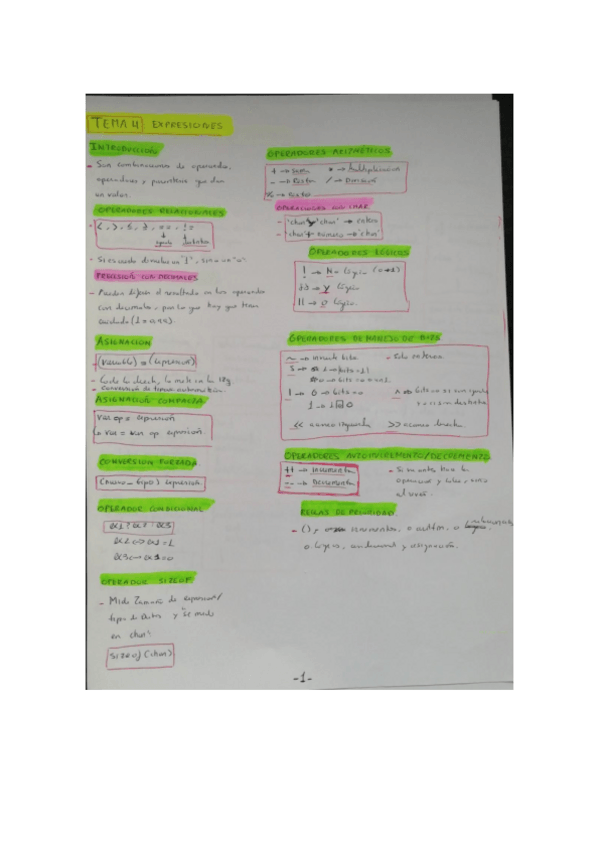 TEMA 4 EXPRESIONES
INTRODUCCIÓN
- Son combinaciones de operandos,
operadores y paréntesis que dan
un valor.
OPERADORES RELACIONALES
<, >, ≤, ≥, ==, !=
igual distinto
- Si es cierto devuelve un "1", sino un "0".
PRECISIÓN CON DECIMALES
- Pueden diferir el resultado en los operandos
con decimales, por lo que hay que tener
cuidado (1 = 0,99).
ASIGNACION
(variable) = (expresion)
- Coge lo derecha, lo mete en la izq.
- Conversión de tipos automática.
ASIGNACIÓN COMPACTA
var op= expresión
var = var op expresión.
CONVERSION FORZADA
(nuevo_tipo) expresión
OPERADOR CONDICIONAL
ex1 ? ex2 : ex3
ex2 <-> ex1 = 1
ex3 <-> ex1 = 0
OPERADOR SIZEOF
- Mide tamaño de expresión/
tipo de datos y se mide
en char
sizeof (char)
OPERADORES ARITMÉTICOS
+ → Suma * → Multiplicacion
- → Resta / → Division
% → Resto
OPERACIONES CON CHAR
- 'char' y 'char' → entero
- 'char' + número → 'char'
OPERADORES LÓGICOS
! → No lógico (0→1)
→ Y lógico
|| → O lógico.
OPERADORES DE MANEJO DE BITS
~ → invierte bits - Solo enteros
<< a uno izquierda >> a uno derecha
OPERADORES AUTOINCREMENTO/DECREMENTO
++ → Incremento
-- → Decremento
REGLAS DE PRIORIDAD
- (), incrementos, o aritm, o relacionales,
o. lógicos, condicional y asignación.
-1-